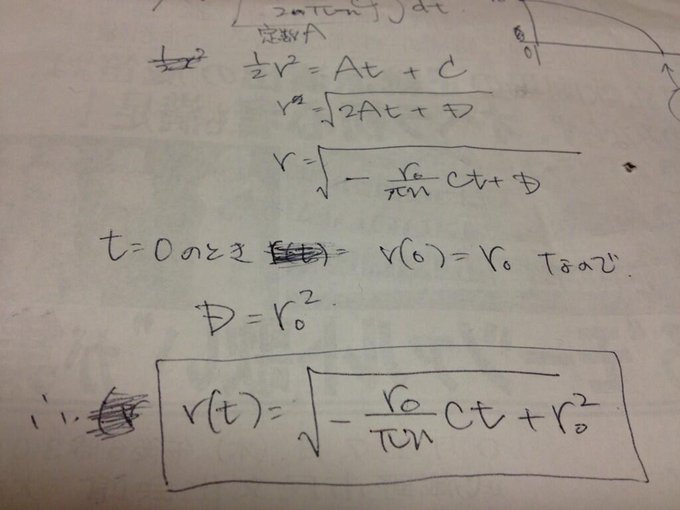 定数A
1/2 r² = At + C
r = √(2At + D)
r = √(- r₀/πn Ct + D)
t=0のとき r(0) = r₀ なので
D = r₀²
∴ r(t) = √(- r₀/πn Ct + r₀²)